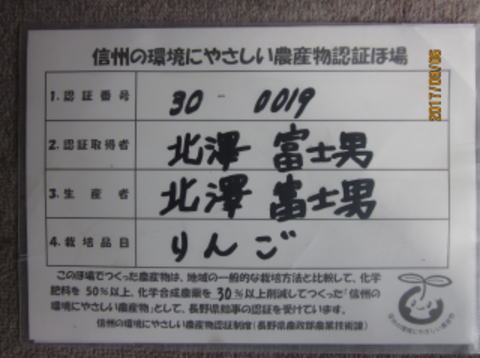 信州の環境にやさしい農産物認証ほ場
2017/09/05
1. 認証番号 30 - 0019
2. 認証取得者 北澤 富士男
3. 生産者 北澤 富士男
4. 栽培品目 りんご
このほ場でつくった農産物は、地域の一般的な栽培方法と比較して、化学
肥料を50%以上、化学合成農薬を30%以上削減してつくった「信州の
環境にやさしい農産物」として、長野県知事の認証を受けています。
信州の環境にやさしい農産物認証制度(長野県農政部農業技術課)
信州の環境にやさしい農産物